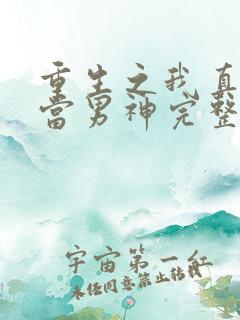 重生之我真
当男神完整
宇宙第一红
未经同意禁止转载